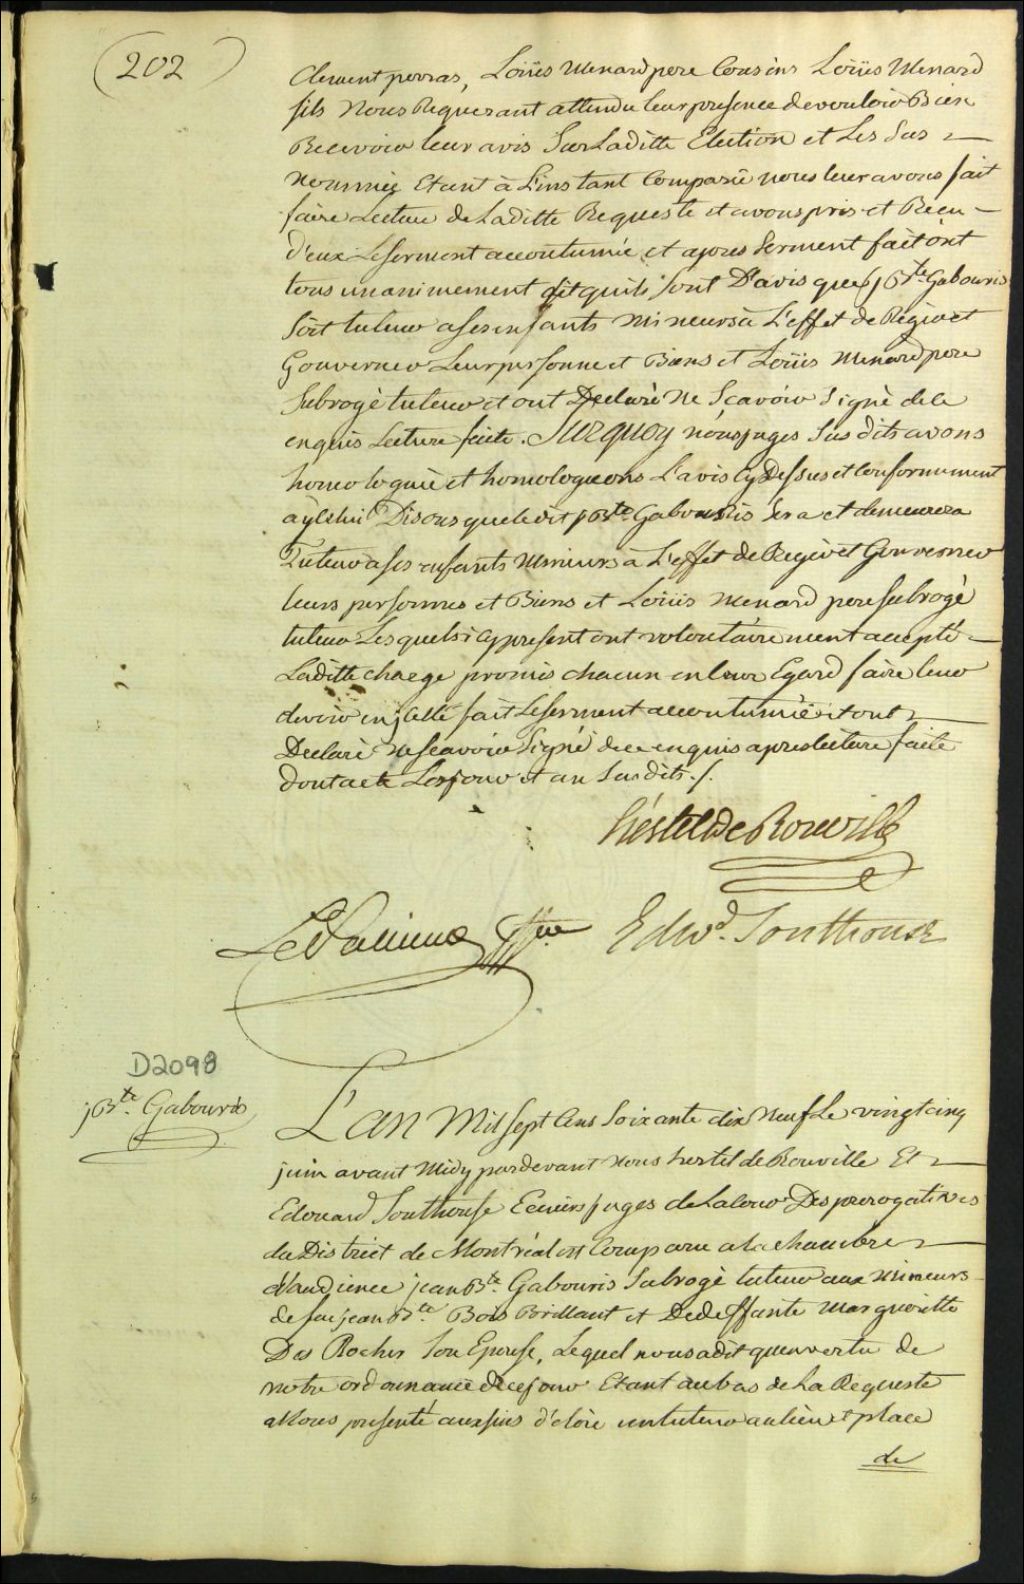 (202)
Clement perras, Loüis Menard pere Cousins Loüis Menard
fils Nous Requerant attendu leur presence de vouloir Bien
Recevoir leur avis Sur Laditte Election et Les Sus
nommée Etant à L'instant Comparüe nous leur avons fait
faire Lecture de Laditte Requeste et avons pris et Reçu
d'eux Le serment accoutumée et apres Serment fait ont
tous unanimement dit quils sont D'avis que jBte Gabouris
Soit tuteur a ses enfants Mineurs à L'effet de Regir et
Gouverner Leur personne et Biens et Loüis Menard pere
Subrogé tuteur et ont Declaré Ne Sçavoir Signé de ce
enquis Lecture faite. Surquoy nous juges Sus dits avons
homologuée et homologuons L'avis Cy Dessus et Conformement
a yceluy Disons que ledit jBte Gabouris Sera et demeurera
Tuteur a ses enfants Mineurs à L'effet de Regir et Gouverner
leurs personnes et Biens et Loüis Menard pere Subrogé
tuteur Les quels icy present ont volontairement accepté
Laditte charge promis chacun en leur Egard faire leur
devoir en jcelle fait Le serment accoutumée et ont
Declaré Ne scavoir Signé de ce enquis apres lecture faite
dont acte Les jour et an Susdits ./.
hertel De Rouville
Edwd. Southouse
D2098
jBte. Gabouris
L'an Mil Sept Cens Soixante dix Neuf Le vingt cinq
juin avant Midy pardevant Nous hertel de Rouville Et
Edouard Southouse Ecuiers juges de La Cour Des prerogatives
du District de Montréal est Comparu a la chambre
d'audience jean Bte. Gabouris Subrogé tuteur aux Mineurs
de feu jean Bte Bois Brillant et De deffunte Margueritte
Des Rocher Son Epouse, Lequel nous a dit qu'en vertu de
notre ordonnance de ce jour Etant au bas de La Requeste
a Nous presenté aux fins d'élire un tuteur au lieu et place
de